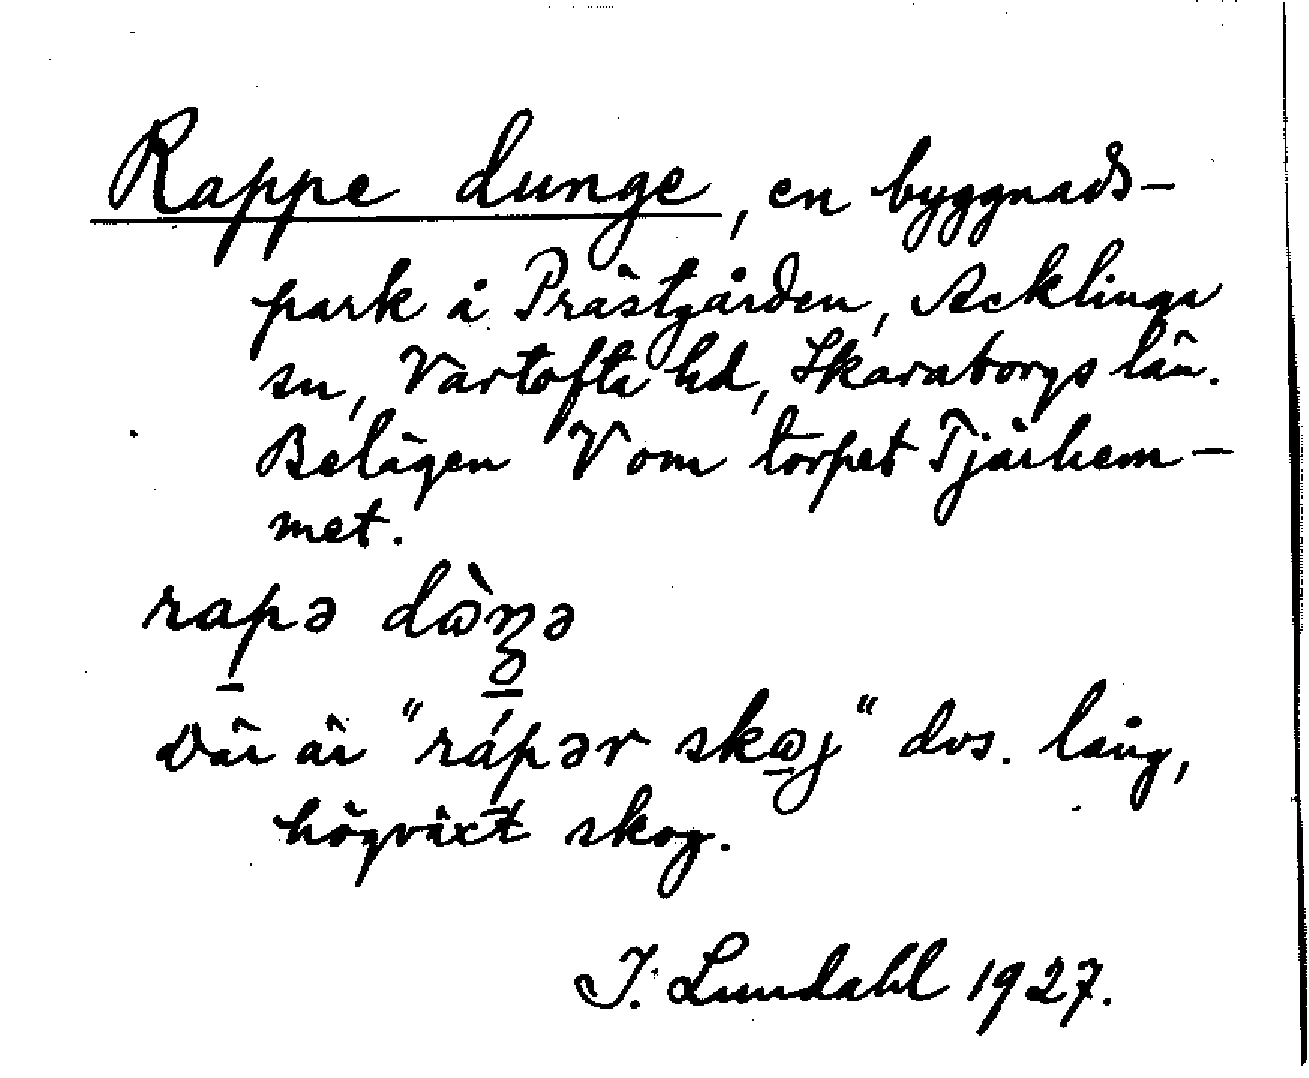 Rappe dunge, en byggnads-
park å Prästgården, Acklinga
sn, Vartofta hd, Skaraborgs län.
Belägen V om torpet Tjärhem-
met.
rapə dɷ̀ŋə
Där är "rápər skɷj" dvs. lång,
högväxt skog.
I. Lundahl 1927.